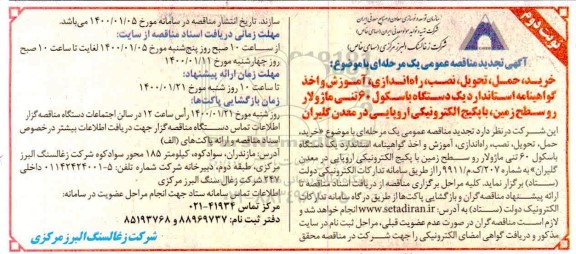 نوبت دوم
سازمان توسعه و نوسازی معادن و صنایع معدنی ایران
شرکت تهیه و تولید مواد معدنی ایران (سهامی خاص)
شرکت زغالسنگ البرز مرکزی (سهامی خاص)
آگهی تجدید مناقصه عمومی یک مرحله‌ای با موضوع:
خرید، حمل، تحویل، نصب، راه‌اندازی، آموزش و اخذ
گواهینامه استاندارد یک دستگاه باسکول ۶۰ تنی ماژولار
رو سطح زمین، با پکیج الکترونیکی اروپایی در معدن گلیران
این شرکت در نظر دارد تجدید مناقصه عمومی یک مرحله‌ای با موضوع «خرید،
حمل، تحویل، نصب، راه‌اندازی، آموزش و اخذ گواهینامه استاندارد یک دستگاه
باسکول ۶۰ تنی ماژولار رو سطح زمین با پکیج الکترونیکی اروپایی در معدن
گلیران» به شماره ۲۰۷/ک‌م/۹۹۱۱ را از طریق سامانه تدارکات الکترونیکی دولت
(ستاد) برگزار نماید. کلیه مراحل برگزاری مناقصه از دریافت اسناد مناقصه تا
ارائه پیشنهاد مناقصه‌گران و بازگشایی پاکت‌ها از طریق درگاه سامانه تدارکات
الکترونیک دولت (ستاد) به آدرس: www.setadiran.ir انجام خواهد شد و
لازم است مناقصه‌گران در صورت عدم عضویت قبلی، مراحل ثبت نام در سایت
مذکور و دریافت گواهی امضای الکترونیکی را جهت شرکت در مناقصه محقق
سازند. تاریخ انتشار مناقصه در سامانه مورخ ۱۴۰۰/۰۱/۰۵ می‌باشد.
مهلت زمانی دریافت اسناد مناقصه از سایت:
از ساعت ۱۰ صبح روز پنجشنبه مورخ ۱۴۰۰/۰۱/۰۵ لغایت تا ساعت ۱۰ صبح
روز چهارشنبه مورخ ۱۴۰۰/۰۱/۱۱
مهلت زمان ارائه پیشنهاد:
تا ساعت ۱۰ روز شنبه مورخ ۱۴۰۰/۰۱/۲۱
زمان بازگشایی پاکت‌ها:
روز شنبه مورخ ۱۴۰۰/۰۱/۲۱ رأس ساعت ۱۲ در سالن اجتماعات دستگاه مناقصه‌گزار
اطلاعات تماس دستگاه مناقصه گزار جهت دریافت اطلاعات بیشتر در خصوص
اسناد مناقصه و ارائه پاکت‌های (الف)
آدرس: مازندران، سوادکوه، کیلومتر ۱۸۵ محور سوادکوه شرکت زغالسنگ البرز
مرکزی، طبقه دوم، دبیرخانه شرکت شماره تلفن: ۵-۰۱۱۴۲۴۲۴۰۰۱ داخلی
۲۴۷ شرکت زغال سنگ البرز مرکزی
اطلاعات تماس سامانه ستاد جهت انجام مراحل عضویت در سامانه:
مرکز تماس ۴۱۹۳۴-۰۲۱
دفتر ثبت نام: ۸۸۹۶۹۷۳۷ و ۸۵۱۹۳۷۶۸
شرکت زغالسنگ البرز مرکزی